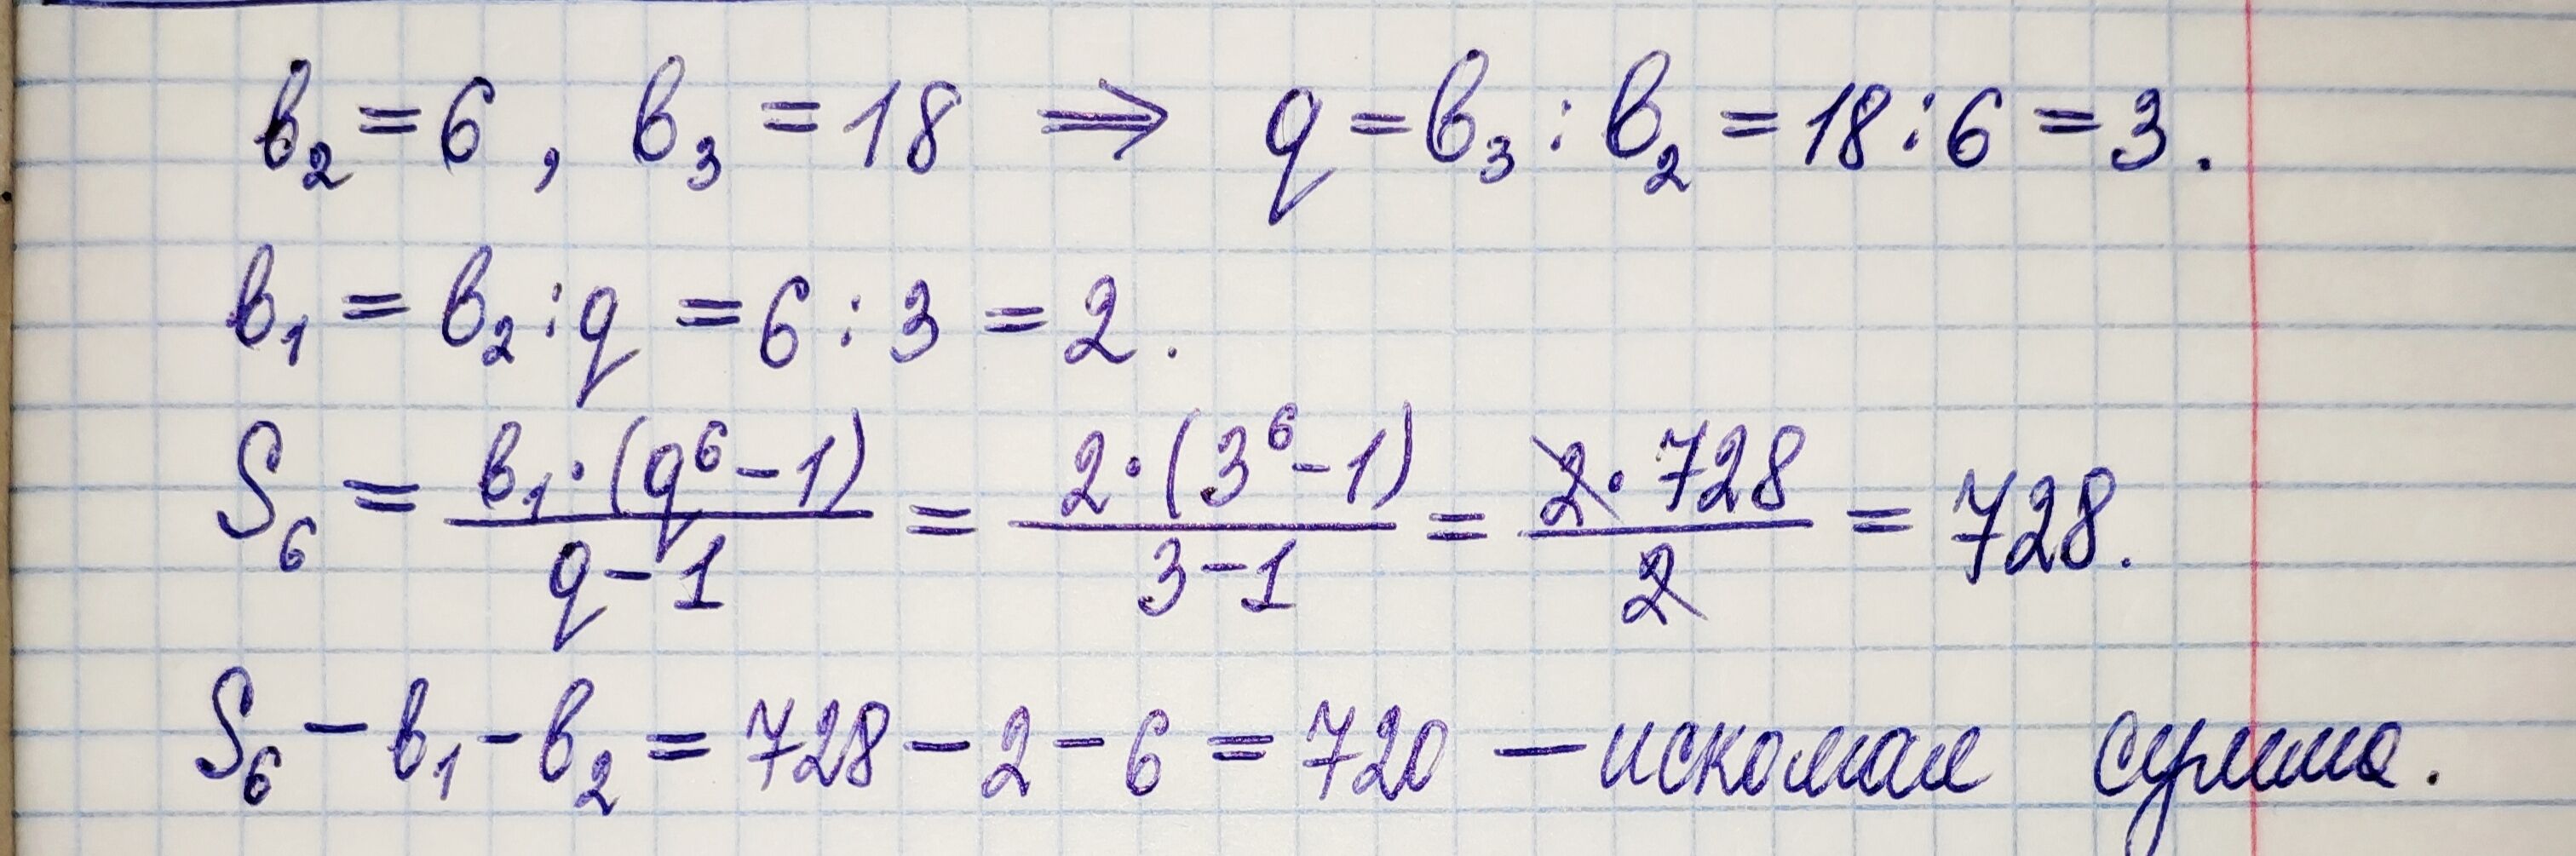 b₂ = 6, b₃ = 18 ⟹ q = b₃ : b₂ = 18 : 6 = 3.
b₁ = b₂ : q = 6 : 3 = 2.
S₆ = b₁·(q⁶−1)/(q−1) = 2·(3⁶−1)/(3−1) = 2·728/2 = 728.
S₆ − b₁ − b₂ = 728 − 2 − 6 = 720 — искомая сумма.